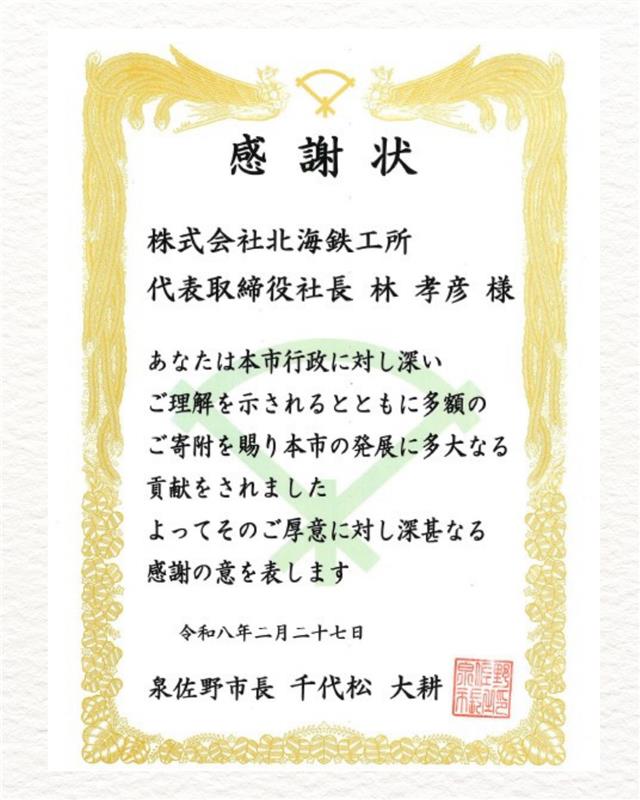 感謝状
株式会社北海鉄工所
代表取締役社長 林 孝彦 様
あなたは本市行政に対し深い
ご理解を示されるとともに多額の
ご寄附を賜り本市の発展に多大なる
貢献をされました
よってそのご厚意に対し深甚なる
感謝の意を表します
令和八年二月二十七日
泉佐野市長 千代松 大耕